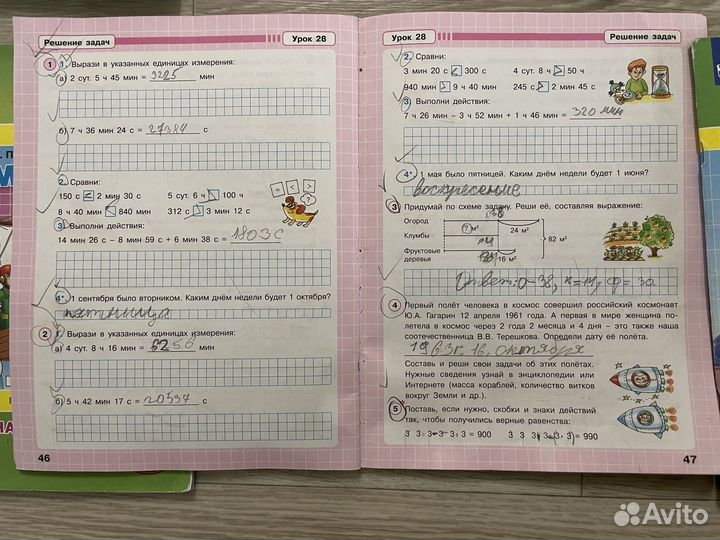 Решение задач Урок 28
1 1. Вырази в указанных единицах измерения:
а) 2 сут. 5 ч 45 мин = 3225 мин
б) 7 ч 36 мин 24 с = 27384 с
2. Сравни:
150 с < 2 мин 30 с 5 сут. 6 ч 100 ч
8 ч 40 мин 840 мин 312 с 3 мин 12 с
= < >
?
3. Выполни действия:
14 мин 26 с – 8 мин 59 с + 6 мин 38 с = 1803 с
4* 1 сентября было вторником. Каким днём недели будет 1 октября?
пятница
2 1. Вырази в указанных единицах измерения:
а) 4 сут. 8 ч 16 мин = 6256 мин
б) 5 ч 42 мин 17 с = 20537 с
46
Урок 28 Решение задач
2. Сравни:
3 мин 20 с < 300 с 4 сут. 8 ч > 50 ч
940 мин > 9 ч 40 мин 245 с > 2 мин 45 с
3. Выполни действия:
7 ч 26 мин – 3 ч 52 мин + 1 ч 46 мин = 320 мин
4* 1 мая было пятницей. Каким днём недели будет 1 июня?
воскресение
3 Придумай по схеме задачу. Реши её, составляя выражение:
38
Огород
? м² 24 м²
Клумбы
14
82 м²
Фруктовые
деревья
16 м²
Ответ: О-38, к=14, ф=30.
4 Первый полёт человека в космос совершил российский космонавт
Ю.А. Гагарин 12 апреля 1961 года. А первая в мире женщина по-
летела в космос через 2 года 2 месяца и 4 дня – это также наша
соотечественница В.В. Терешкова. Определи дату её полёта.
1963г. 16. октября
Составь и реши свои задачи об этих полётах.
Нужные сведения узнай в энциклопедии или
Интернете (масса кораблей, количество витков
вокруг Земли и др.).
5 Поставь, если нужно, скобки и знаки действий
так, чтобы получились верные равенства:
3 3 3 3 3 3 = 900 3 3 3 3 3 3 = 990
47
Avito